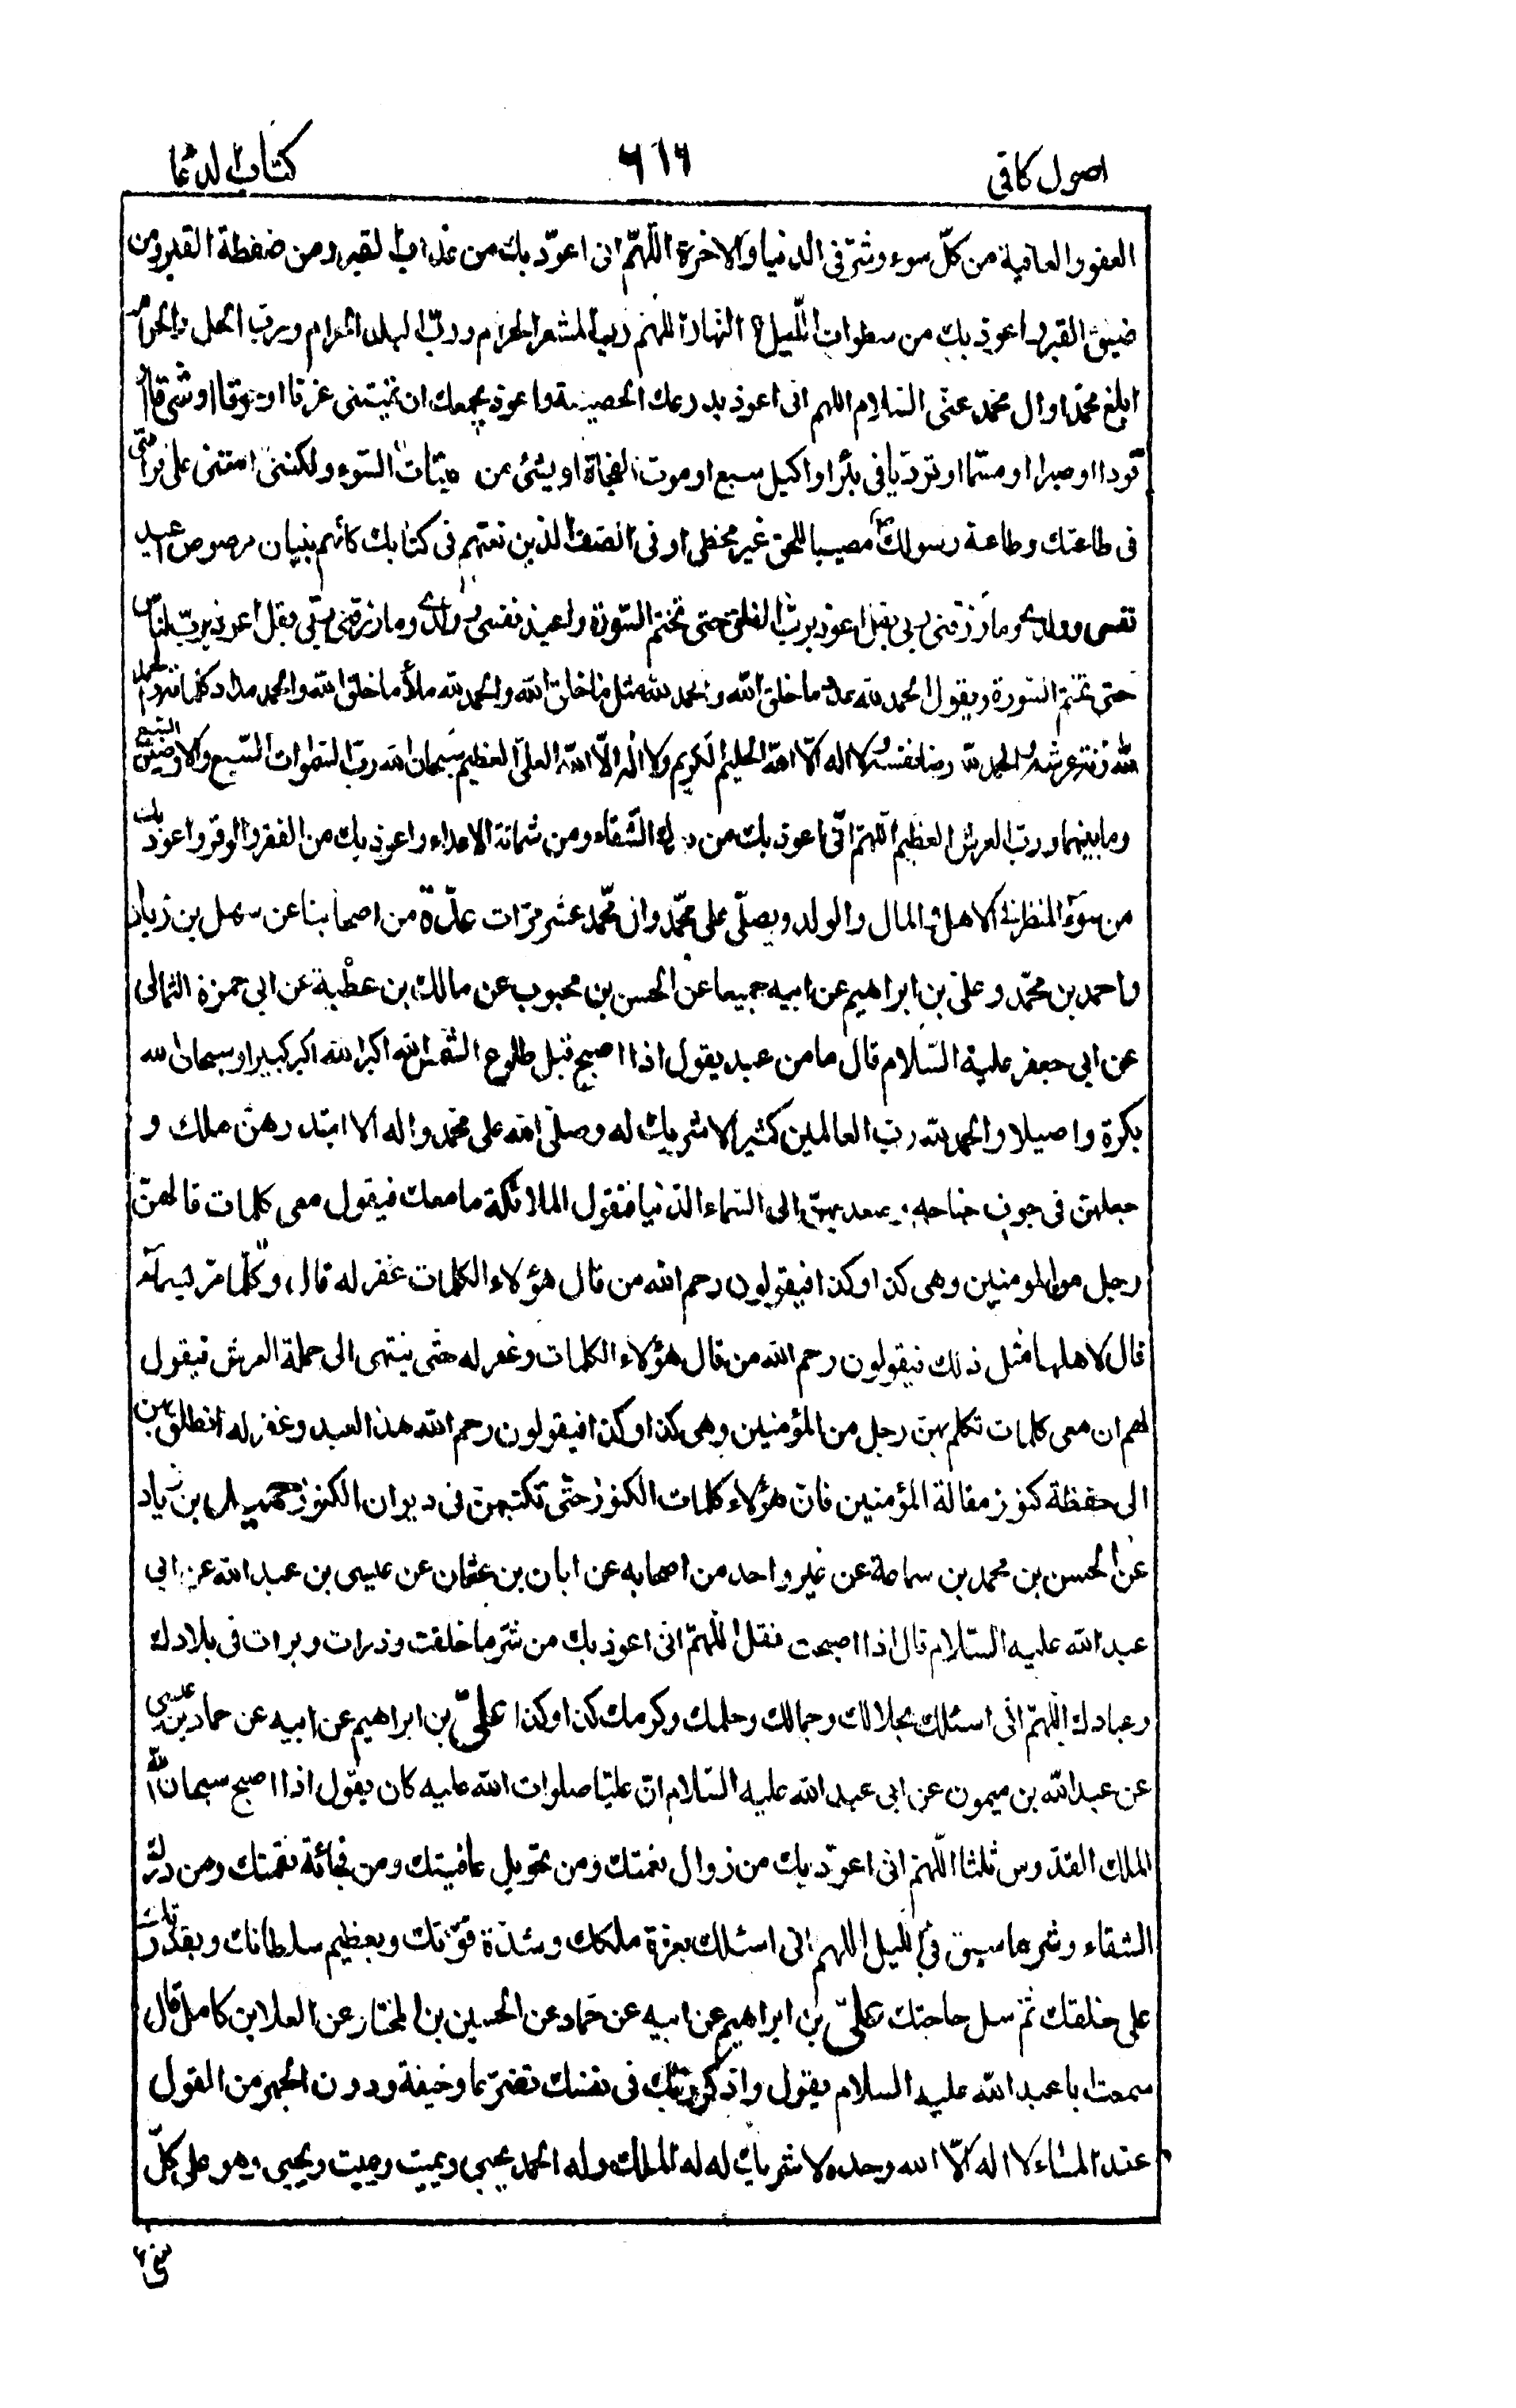 اصول كافى ٦١٦ كتاب الدعا
العفو والعافية من كلّ سوء وشرّ فى الدنيا والاخرة اللّهمّ انى اعوذ بك من عذاب القبر ومن ضغطة القبر ومن
ضيق القبر واعوذ بك من سطوات اللّيل والنّهار اللّهم ربّ المشعر الحرام وربّ البلد الحرام وربّ الحل والحرام
ابلغ محمّدا وال محمّد عنّى السّلام اللهم انى اعوذ بدرعك الحصينة واعوذ بجمعك ان تميتنى غرقا او حرقا او شرقا او
قودا او صبرا او مسمّا او تردّيا فى بئر او اكيل سبع او موت الفجاة او بشئ من ميتات السّوء ولكن امتنى على فراشى
فى طاعتك وطاعة رسولك مصيبا للحق غير مخطى او فى الصفّ الذين نعتهم فى كتابك كانهم بنيان مرصوص اعيذ
نفسى وولدى وما رزقنى ربى بقل اعوذ بربّ الفلق حتى تختم السّورة واعيذ نفسى وولدى وما رزقنى ربّى بقل اعوذ بربّ النّاس
حتى تختم السّورة ويقول الحمد لله عدد ما خلق اللّه والحمد لله مثل ما خلق اللّه والحمد لله ملأ ما خلق اللّه والحمد لله مداد كلماته والحمد
للّه زنة عرشه والحمد للّه رضا نفسه ولا اله الّا اللّه الحليم الكريم ولا اله الّا اللّه العلىّ العظيم سبحان اللّه ربّ السّموات السّبع والارضين السّبع
وما بينهما وربّ العرش العظيم اللّهمّ انّى اعوذ بك من درك الشّقاء ومن شماتة الاعداء واعوذ بك من الفقر والوقر واعوذ بك
من سوء المنظر فى الاهل والمال والولد ويصلّى على محمّد وال محمّد عشر مرّات عدّة من اصحابنا عن سهل بن زياد
واحمد بن محمّد وعلى بن ابراهيم عن ابيه جميعا عن الحسن بن محبوب عن مالك بن عطية عن ابى حمزة الثمالى
عن ابى جعفر عليه السّلام قال ما من عبد يقول اذا اصبح قبل طلوع الشّمس اللّه اكبر اللّه اكبر كبيرا وسبحان لله
بكرة واصيلا والحمد لله رب العالمين كثيرا لا شريك له وصلّى الله على محمّد واله الا ابتدرهنّ ملك و
جعلهنّ فى جوف جناحه وصعد بهنّ الى السّماء الدّنيا فتقول الملائكة ما معك فيقول معى كلمات قالهنّ
رجل من المومنين وهى كذا وكذا فيقولون رحم اللّه من قال هؤلاء الكلمات غفر له قال وكلّما مرّ بسمآء
قال لاهلها مثل ذلك فيقولون رحم الله من قال هؤلاء الكلمات وغفر له حتّى ينتهى الى حملة العرش فيقول
لهم ان معى كلمات تكلم بهنّ رجل من المؤمنين وهى كذا وكذا فيقولون رحم اللّه هذا العبد وغفر له انطلق بهن
الى حفظة كنوز مقالة المؤمنين فانّ هؤلاء كلمات الكنوز حتّى تكتبهنّ فى ديوان الكنوز حميد بن زياد
عن الحسن بن محمد بن سماعة عن غير واحد من اصحابه عن ابان بن عثمان عن عيسى بن عبد الله عن ابى
عبد اللّه عليه السّلام قال اذا اصبحت فقل اللّهمّ انى اعوذ بك من شرّ ما خلقت وذرات وبرات فى بلادك
وعبادك اللّهمّ انى اسئلك بجلالك وجمالك وحلمك وكرمك كذا وكذا علىّ بن ابراهيم عن ابيه عن حماد بن عيسى
عن عبد اللّه بن ميمون عن ابى عبد الله عليه السّلام انّ عليّا صلوات اللّه عليه كان يقول اذا اصبح سبحان اللّه
الملك القدّوس ثلثا اللّهمّ انى اعوذ بك من زوال نعمتك ومن تحويل عافيتك ومن فجائة نقمتك ومن درك
الشقاء وشر ما سبق فى اللّيل اللهم انى اسئلك بعزة ملكك وشدّة قوّتك وبعظيم سلطانك وبقدرتك
على خلقك ثمّ سل حاجتك علىّ بن ابراهيم عن ابيه عن حمّاد عن الحسين بن المختار عن العلا بن كامل قال
سمعت ابا عبد اللّه عليه السلام يقول واذكر ربّك فى نفسك تضرّعا وخيفة ودون الجهر من القول
عند المساء لا اله الّا الله وحده لا شريك له له الملك وله الحمد يحيى ويميت ويميت ويحيى وهو على كلّ
شئ